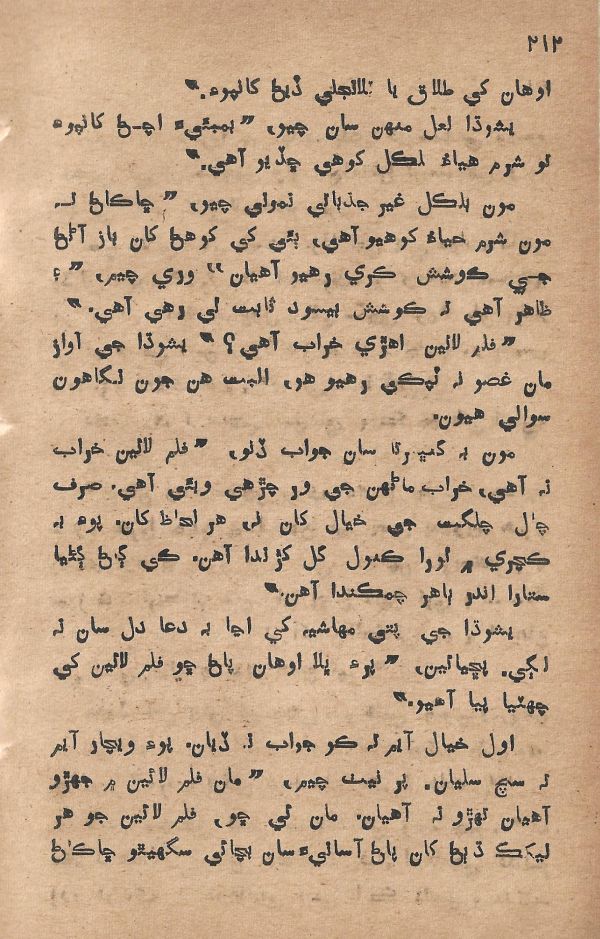 ۲۱۲
اوهان کي طلاق يا تلانجلي ڏيڻ کانپوءِ.“
يشوڌا لعل منهن سان چيو، ”بمبئيءَ اچڻ کانپوءِ
تو شرم حياءُ بلڪل کوهي ڇڏيو آهي.“
مون بلڪل غير جذباتي نموني چيو، ”ڇاڪاڻ تہ
مون شرم حياءُ کوهيو آهي، ٻئي کي کوهڻ کان باز آڻڻ
جي ڪوشش ڪري رهيو آهيان“ وري چيم، ”۽
ظاهر آهي تہ ڪوشش بيسود ثابت ٿي رهي آهي.“
”فلم لائين اهڙي خراب آهي؟“ يشوڌا جي آواز
مان غصو نہ ٽپڪي رهيو هو، البت هن جون نگاهون
سوالي هيون.
مون بہ گنڀيرتا سان جواب ڏنو، ”فلم لائين خراب
نہ آهي، خراب ماڻهن جي ور چڙهي ويئي آهي. صرف
چال چلگت جي خيال کان نہ، هر لحاظ کان. پوءِ بہ
ڪچري ۾ ٿورا ڪنول گل کڙندا آهن. ڪي ڳڻ ڳڻيا
ستارا اندر ٻاهر چمڪندا آهن.“
يشوڌا جي پتي مهاشيہ کي اڃا بہ دعا دل سان نہ
لڳي. پڇيائين، ”پوءِ ڀلا اوهان پاڻ ڇو فلم لائين کي
چهٽيا پيا آهيو.“
اول خيال آيم تہ ڪو جواب نہ ڏيان. پوءِ ويچار آيم
تہ سچ سليان. پر نيٺ چيم، ”مان فلم لائين ۾ جهڙو
آهيان تهڙو نہ آهيان. مان ئي ڇو، فلم لائين جو هر
ليکڪ ڏيڻ کان پاڻ آسانيءَ سان بچائي سگهيٿو ڇاڪاڻ